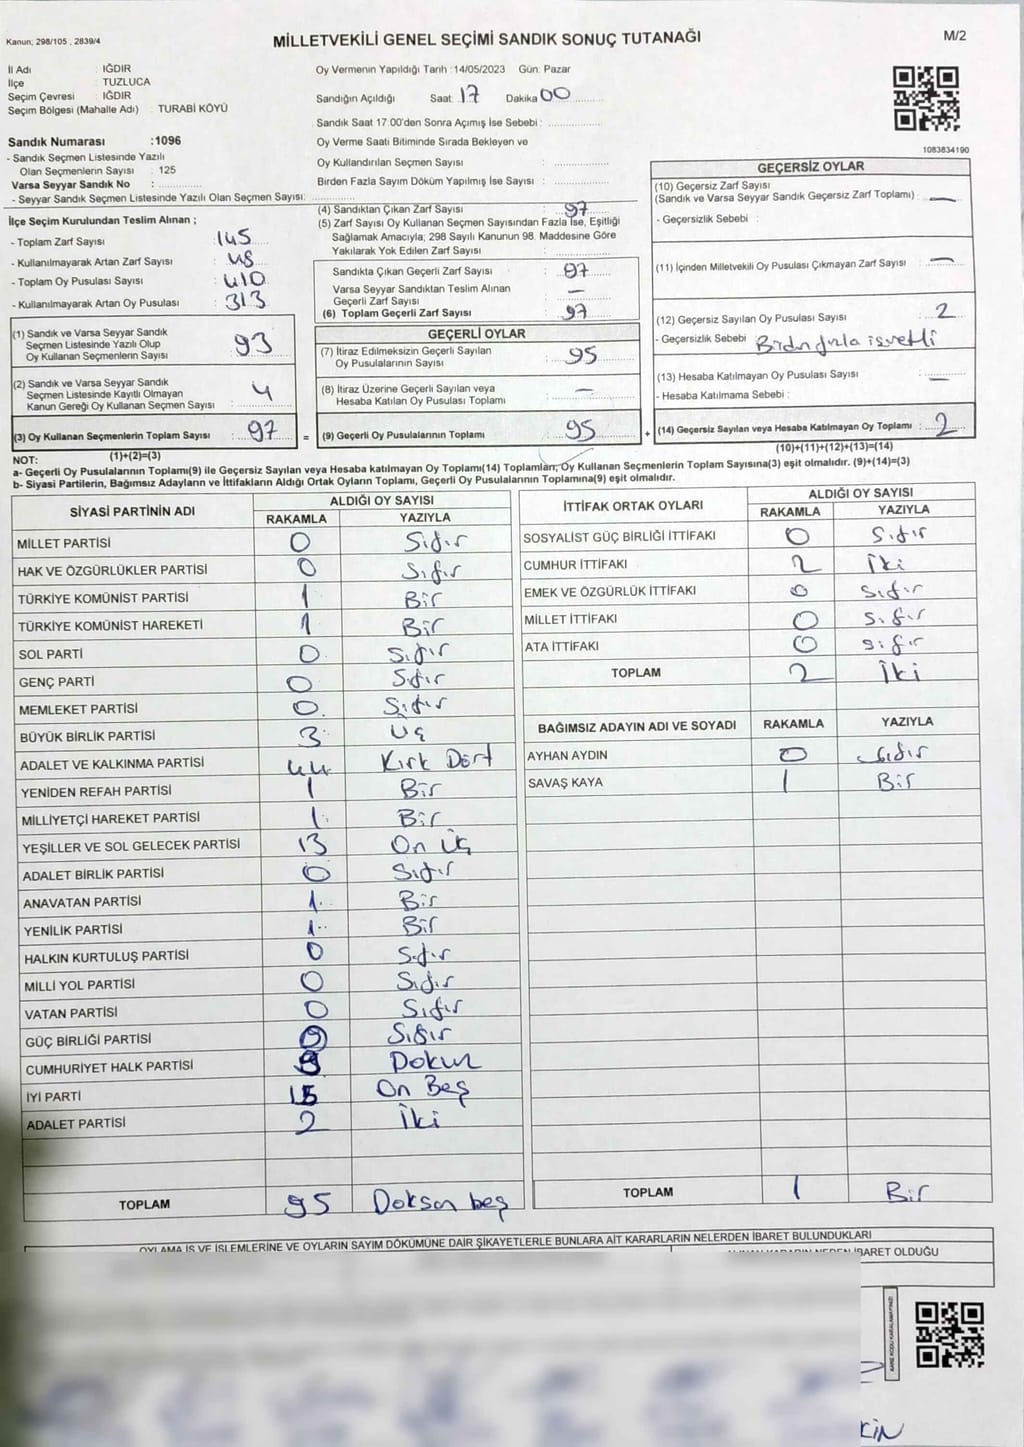 Kanun; 298/105 , 2839/4
MİLLETVEKİLİ GENEL SEÇİMİ SANDIK SONUÇ TUTANAĞI
M/2
İl Adı : IĞDIR
İlçe : TUZLUCA
Seçim Çevresi : IĞDIR
Seçim Bölgesi (Mahalle Adı) : TURABİ KÖYÜ
Sandık Numarası :1096
- Sandık Seçmen Listesinde Yazılı
Olan Seçmenlerin Sayısı : 125
Varsa Seyyar Sandık No : ..............
- Seyyar Sandık Seçmen Listesinde Yazılı Olan Seçmen Sayısı: ..............
Oy Vermenin Yapıldığı Tarih :14/05/2023 Gün: Pazar
Sandığın Açıldığı Saat 17 Dakika 00
Sandık Saat 17:00'den Sonra Açımış İse Sebebi : ..............
Oy Verme Saati Bitiminde Sırada Bekleyen ve
Oy Kullandırılan Seçmen Sayısı : ..............
Birden Fazla Sayım Döküm Yapılmış İse Sayısı : ..............
1083834190
İlçe Seçim Kurulundan Teslim Alınan ;
- Toplam Zarf Sayısı : 145
- Kullanılmayarak Artan Zarf Sayısı : 48
- Toplam Oy Pusulası Sayısı : 410
- Kullanılmayarak Artan Oy Pusulası : 313
(1) Sandık ve Varsa Seyyar Sandık
Seçmen Listesinde Yazılı Olup
Oy Kullanan Seçmenlerin Sayısı : 93
(2) Sandık ve Varsa Seyyar Sandık
Seçmen Listesinde Kayıtlı Olmayan
Kanun Gereği Oy Kullanan Seçmen Sayısı : 4
(3) Oy Kullanan Seçmenlerin Toplam Sayısı : 97
(1)+(2)=(3)
(4) Sandıktan Çıkan Zarf Sayısı : 97
(5) Zarf Sayısı Oy Kullanan Seçmen Sayısından Fazla İse, Eşitliği
Sağlamak Amacıyla; 298 Sayılı Kanunun 98. Maddesine Göre
Yakılarak Yok Edilen Zarf Sayısı : ..............
Sandıkta Çıkan Geçerli Zarf Sayısı : 97
Varsa Seyyar Sandıktan Teslim Alınan
Geçerli Zarf Sayısı : —
(6) Toplam Geçerli Zarf Sayısı : 97
GEÇERLİ OYLAR
(7) İtiraz Edilmeksizin Geçerli Sayılan
Oy Pusulalarının Sayısı : 95
(8) İtiraz Üzerine Geçerli Sayılan veya
Hesaba Katılan Oy Pusulası Toplamı : —
= (9) Geçerli Oy Pusulalarının Toplamı : 95
GEÇERSİZ OYLAR
(10) Geçersiz Zarf Sayısı
(Sandık ve Varsa Seyyar Sandık Geçersiz Zarf Toplamı) : —
- Geçersizlik Sebebi :
(11) İçinden Milletvekili Oy Pusulası Çıkmayan Zarf Sayısı : —
(12) Geçersiz Sayılan Oy Pusulası Sayısı : 2
- Geçersizlik Sebebi
(13) Hesaba Katılmayan Oy Pusulası Sayısı : —
- Hesaba Katılmama Sebebi :
+ (14) Geçersiz Sayılan veya Hesaba Katılmayan Oy Toplamı : 2
(10)+(11)+(12)+(13)=(14)
NOT:
a- Geçerli Oy Pusulalarının Toplamı(9) ile Geçersiz Sayılan veya Hesaba katılmayan Oy Toplamı(14) Toplamları, Oy Kullanan Seçmenlerin Toplam Sayısına(3) eşit olmalıdır. (9)+(14)=(3)
b- Siyasi Partilerin, Bağımsız Adayların ve İttifakların Aldığı Ortak Oyların Toplamı, Geçerli Oy Pusulalarının Toplamına(9) eşit olmalıdır.
SİYASİ PARTİNİN ADI ALDIĞI OY SAYISI
RAKAMLA YAZIYLA
MİLLET PARTİSİ 0 Sıfır
HAK VE ÖZGÜRLÜKLER PARTİSİ 0 Sıfır
TÜRKİYE KOMÜNİST PARTİSİ 1 Bir
TÜRKİYE KOMÜNİST HAREKETİ 1 Bir
SOL PARTİ 0 Sıfır
GENÇ PARTİ 0 Sıfır
MEMLEKET PARTİSİ 0 Sıfır
BÜYÜK BİRLİK PARTİSİ 3 Üç
ADALET VE KALKINMA PARTİSİ 44 Kırk Dört
YENİDEN REFAH PARTİSİ 1 Bir
MİLLİYETÇİ HAREKET PARTİSİ 1 Bir
YEŞİLLER VE SOL GELECEK PARTİSİ 13 On Üç
ADALET BİRLİK PARTİSİ 0 Sıfır
ANAVATAN PARTİSİ 1 Bir
YENİLİK PARTİSİ 1 Bir
HALKIN KURTULUŞ PARTİSİ 0 Sıfır
MİLLİ YOL PARTİSİ 0 Sıfır
VATAN PARTİSİ 0 Sıfır
GÜÇ BİRLİĞİ PARTİSİ 0 Sıfır
CUMHURİYET HALK PARTİSİ 9 Dokuz
İYİ PARTİ 15 On Beş
ADALET PARTİSİ 2 İki
TOPLAM 95 Doksan beş
İTTİFAK ORTAK OYLARI ALDIĞI OY SAYISI
RAKAMLA YAZIYLA
SOSYALİST GÜÇ BİRLİĞİ İTTİFAKI 0 Sıfır
CUMHUR İTTİFAKI 2 İki
EMEK VE ÖZGÜRLÜK İTTİFAKI 0 Sıfır
MİLLET İTTİFAKI 0 Sıfır
ATA İTTİFAKI 0 Sıfır
TOPLAM 2 İki
BAĞIMSIZ ADAYIN ADI VE SOYADI RAKAMLA YAZIYLA
AYHAN AYDIN 0 Sıfır
SAVAŞ KAYA 1 Bir
TOPLAM 1 Bir
OYLAMA İŞ VE İŞLEMLERİNE VE OYLARIN SAYIM DÖKÜMÜNE DAİR ŞİKAYETLERLE BUNLARA AİT KARARLARIN NELERDEN İBARET BULUNDUKLARI
İBARET OLDUĞU